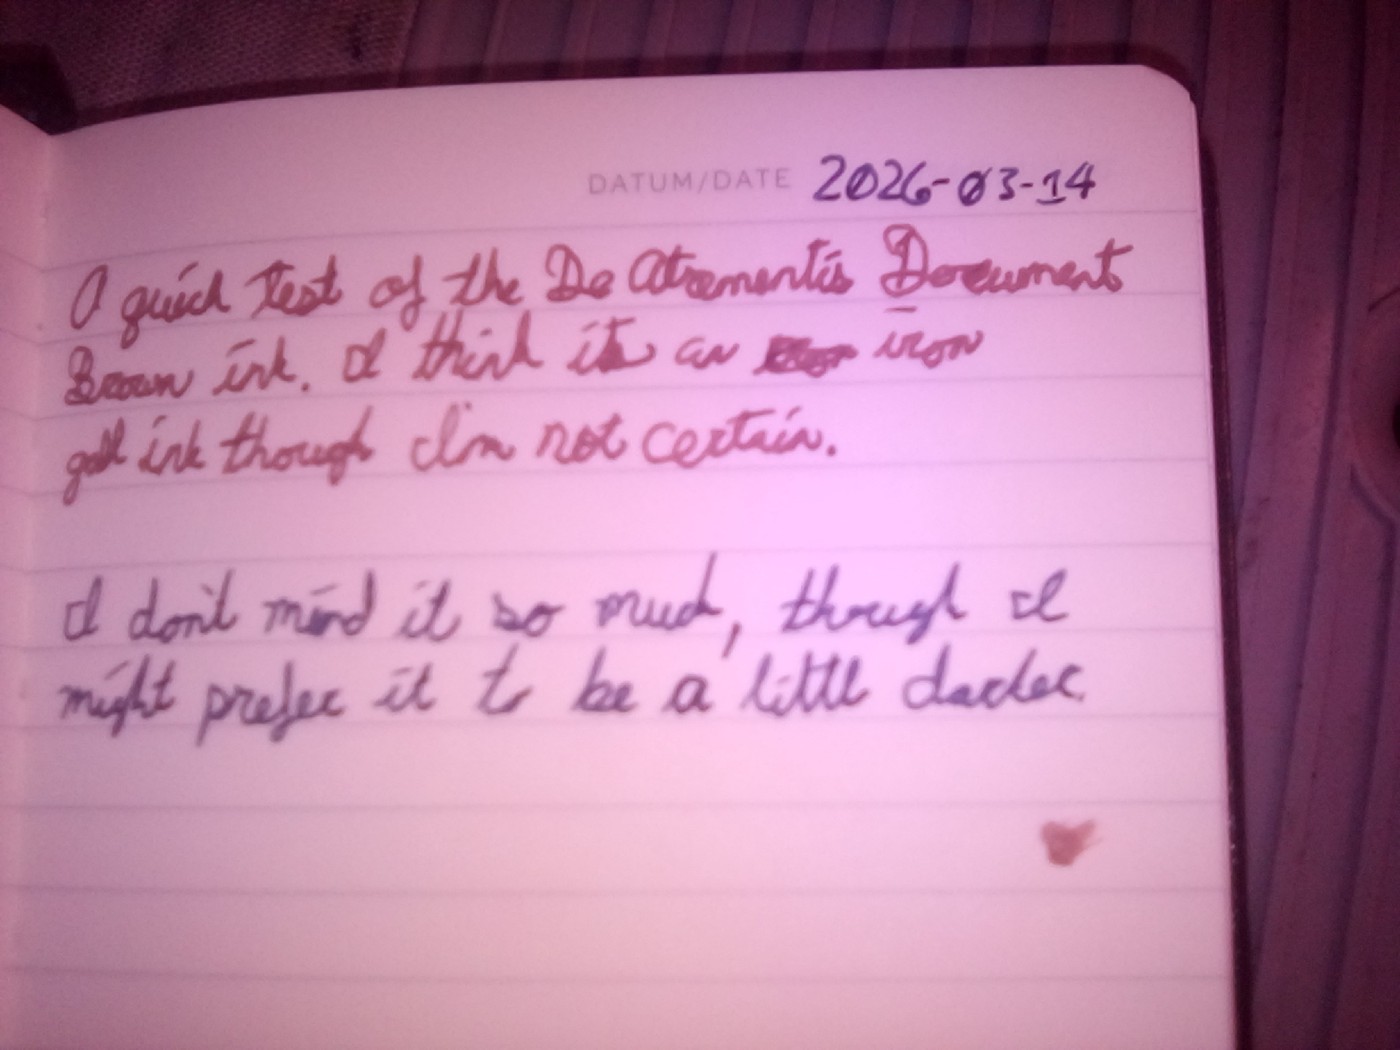 DATUM/DATE 2026-03-14
A quick test of the De Atramentis Document
Brown ink. I think its an iron
gall ink though I'm not certain.
I don't mind it so much, though I
might prefer it to be a little darker.